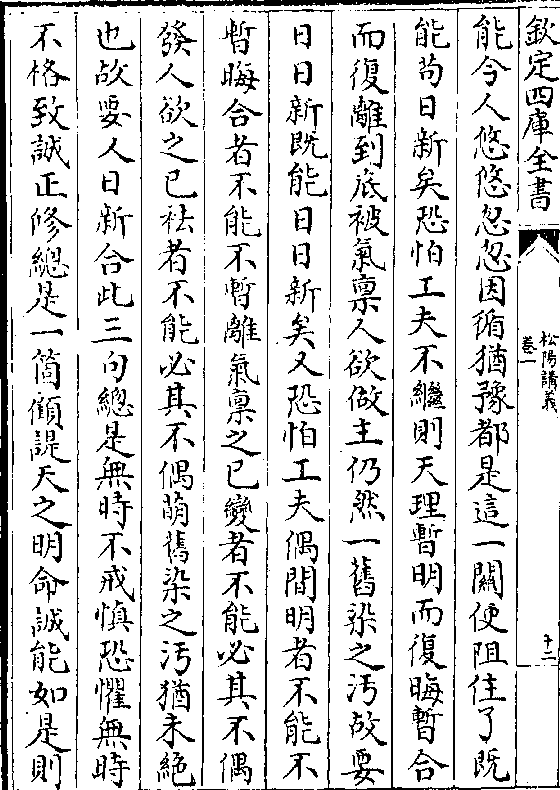 欽定四庫全書
松陽講義
卷一
十二
能令人悠悠忽忽因循猶豫都是這一關使阻住了既
能苟日新矣恐怕工夫不繼則天理暫明而復晦暫合
而復離到底被氣禀人欲做主仍然一舊染之汚故要
日日新既能日日新矣又恐怕工夫偶間明者不能不
暫晦合者不能不暫離氣禀之已變者不能必其不偶
發人欲之已袪者不能必其不偶萌舊染之汚猶未絶
也故要人日新合此三句總是無時不戒慎恐懼無時
不格致誠正修總是一箇顧諟天之明命誠能如是則